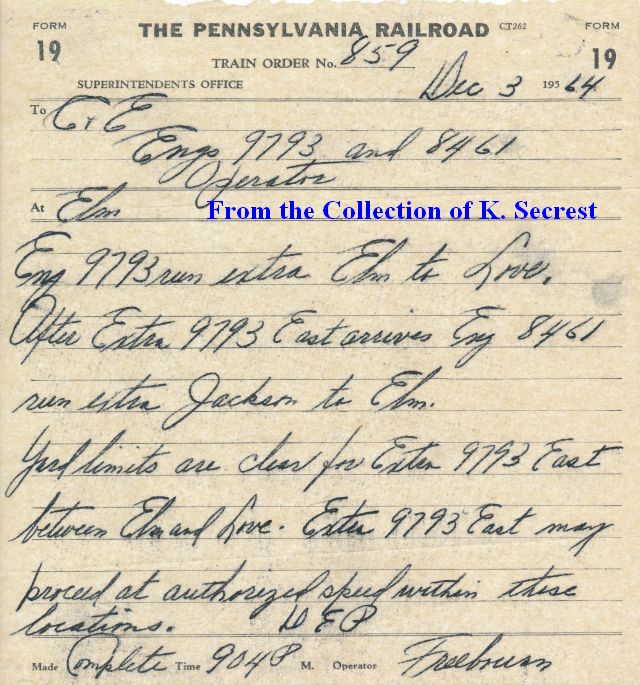 FORM 19 THE PENNSYLVANIA RAILROAD CT262 FORM 19
TRAIN ORDER No. 859
SUPERINTENDENTS OFFICE Dec 3 1956 64
To C & E
Engs 9793 and 8461
Operator
At Elm From the Collection of K. Secrest
Eng 9793 run extra Elm to Love.
After Extra 9793 East arrives Eng 8461
run extra Jackson to Elm.
Yard limits are clear for Extra 9793 East
between Elm and Love. Extra 9793 East may
proceed at authorized speed within these
locations. DEP
Made Complete Time 904P M. Operator